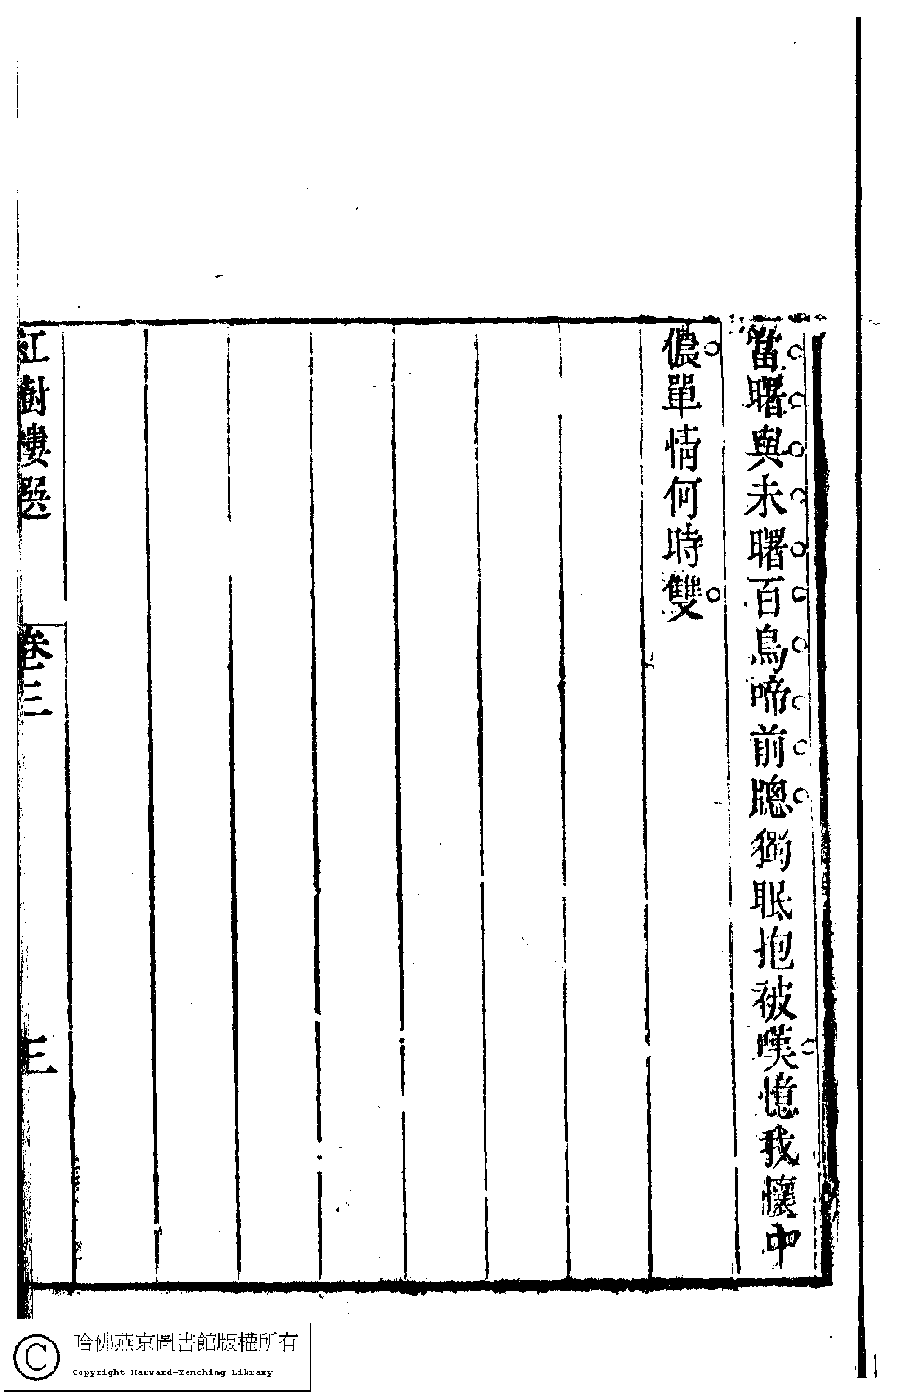 當曙與未曙百鳥啼前牕獨眠抱被嘆憶我懷中
儂單情何時雙
紅樹樓選
卷三
三
哈佛燕京圖書館版權所有
Copyright Harvard-Yenching Library